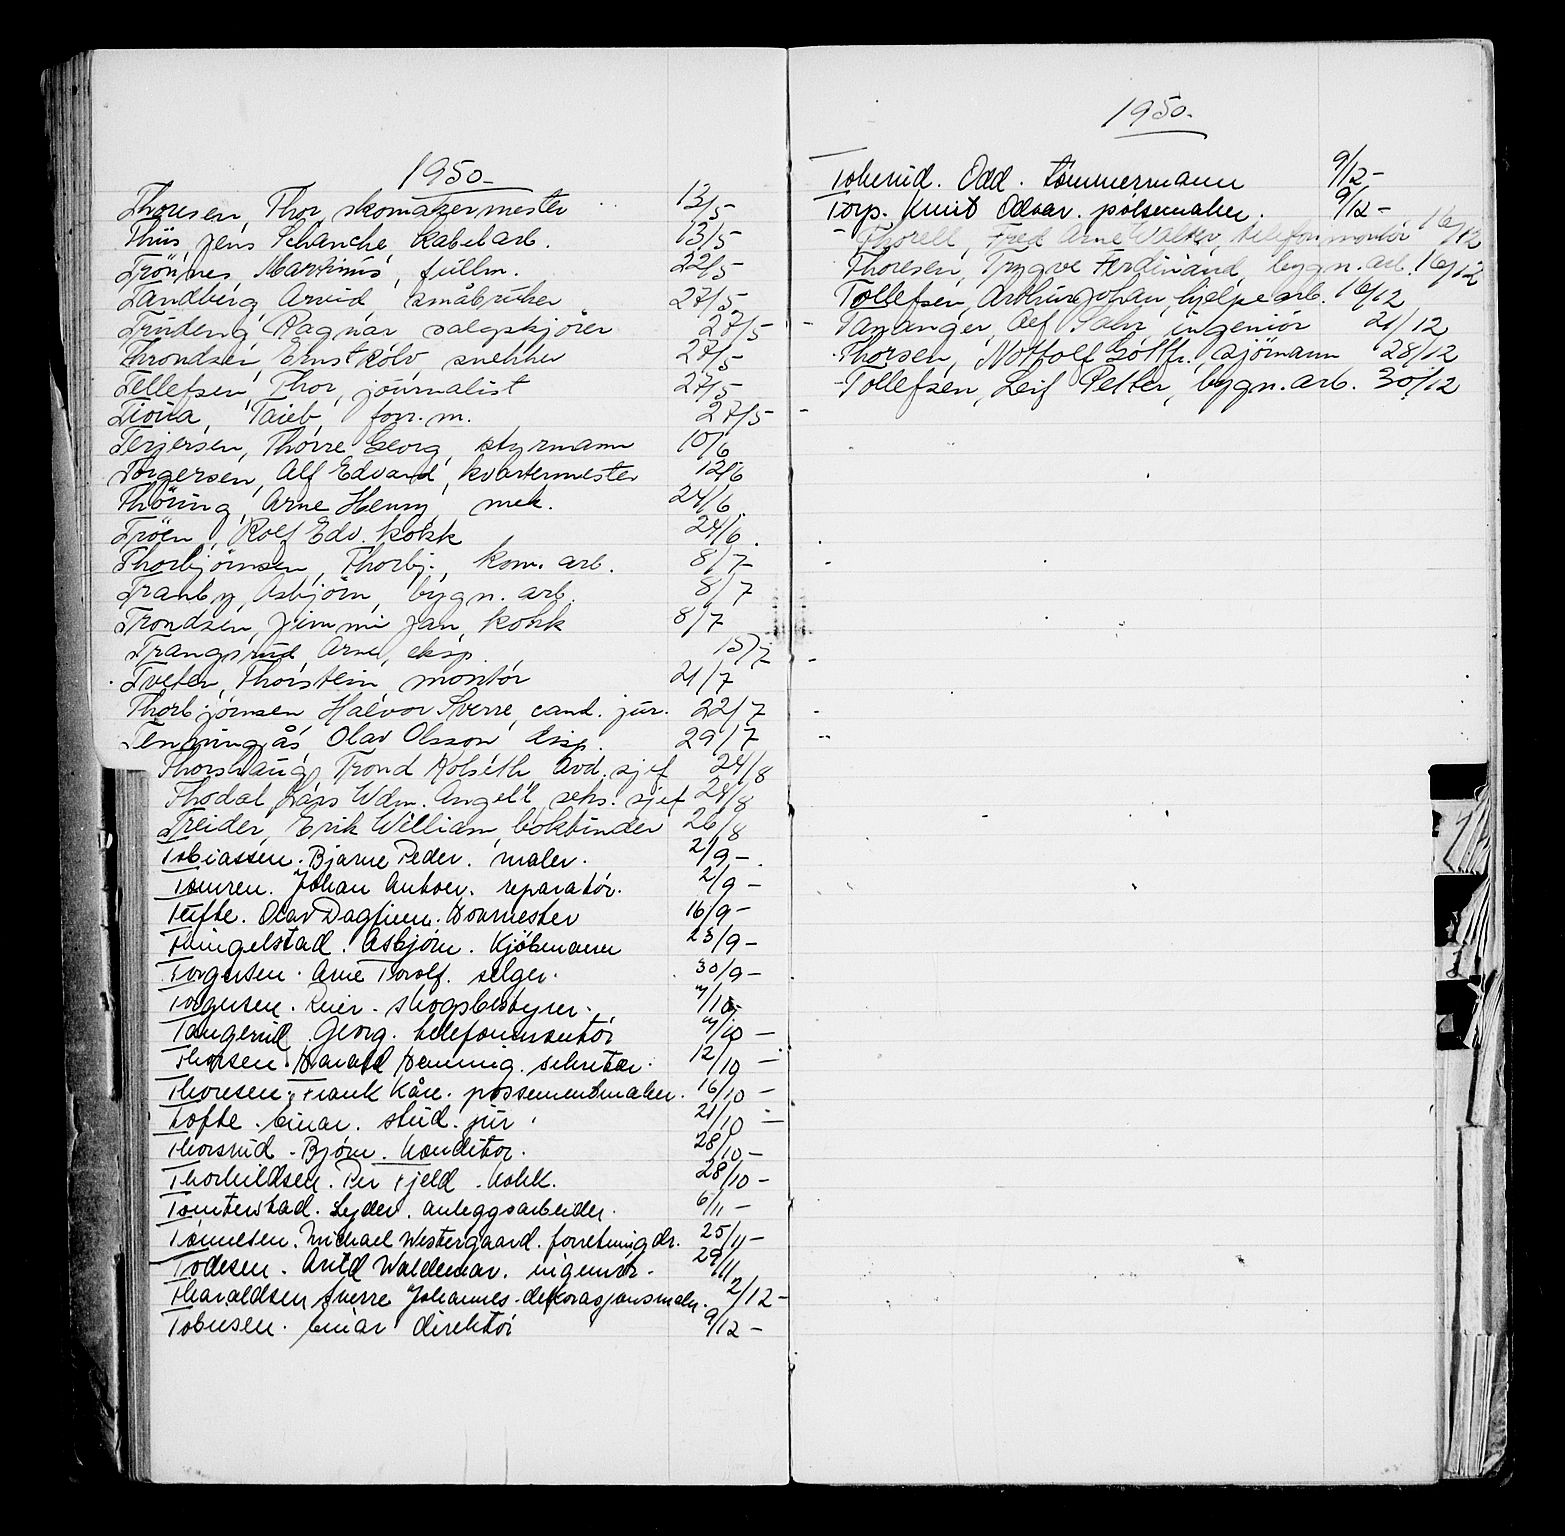 1950.-
Thoresen, Thor, skomakermester 13/5-
Thiis, Jens Schanche, kabelarb. 13/5
Trönnes, Martinus, fullm. 22/5
Tandberg, Arvid småbruker 27/5-
Trudeng, Ragnar salgskjörer 27/5-
Throndsen, Ernst Rolv, snekker 27/5
Tellefsen, Thor, journalist 27/5-
Taieb, forr.m. 27/5-
Terjersen, Thorre Georg, styrmann 10/6
Torgersen, Alf Edvard, kvartermester 12/6
Thöring, Arne Henry, mek. 24/6
Tröen, Rolf Edv. kokk 24/6
Thorbjörnsen, Thorbj., kom. arb. 8/7
Tranby, Asbjörn, bygn. arb. 8/7
Trondsen, Jimmi Jan, kokk 8/7
Trangsrud, Arne, eksp. 15/7
Tveter, Thorstein, montör 21/7
Thorbjörnsen, Halvor Sverre, cand. jur. 22/7
Tenningås, Olav Olsson, disp. 29/7
Thorshaug, Trond Holseth, avd. sjef 24/8
Thodal, Lars Wdm. Angell, seks. sjef 24/8
Treider, Erik William, bokbinder 26/8
Tobiassen. Bjarne Peder. maler. 2/9-
Tømren. Johan Anton. reparatör. 2/9-
Tufte. Olav Dagfinn. Hovmester 16/9-
Thingelstad. Asbjörn. Kjöbmann 23/9-
Torgersen. Arne Torolf. selger. 30/9-
Torgersen. Reier. skogsbestyrer. 7/10-
Tangerud. Georg. telefonmontör 7/10-
Thorsen. Harald Henning. sekretær. 12/10-
Thoresen. Frank Kåre. possementmaker. 16/10-
Tofte. Einar. stud. jur. 21/10-
Thorsrud. Bjørn. Konditor. 28/10-
Thorkildsen. Per Fjeld. kokk. 28/10-
Tomterstad. Syder. anleggsarbeider. 6/11-
Tønnesen. Michael Westergaard. forretningdr. 25/11-
Todesen. Arild Waldemar. ingeniör. 29/11
Tharaldsen Sverre Johannes. dekorasjonsmaler. 2/12-
Tobiesen. Einar direktör 9/12-
1950.
Odd. tömmermann 9/12-
Torp. Knut Odvar. pølsemaker. 9/12-
Thorell, Fred Arne Walter, telefonmontör 16/12
Thoresen, Trygve Ferdinand, bygn. arb. 16/12
Tollefsen, Arthur Johan, hjelpearb. 16/12
Tananger, Alf Salve, ingeniör 21/12
Thorsen, Notfolf Gottfr., sjömann 28/12
Tollefsen, Leif Petter, bygn. arb. 30/12